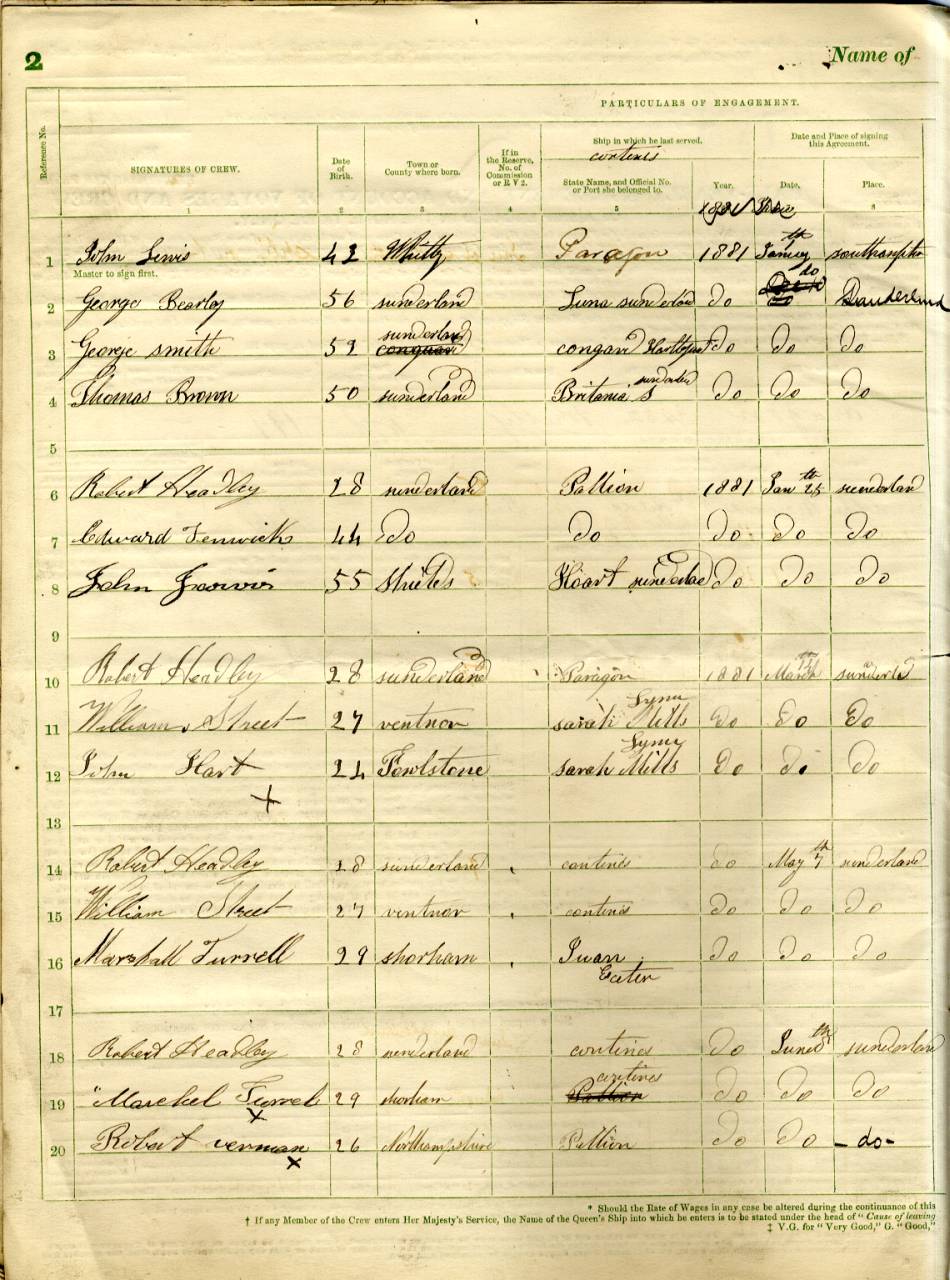 2
Name of
PARTICULARS OF ENGAGEMENT.
Reference No.
SIGNATURES OF CREW.
Date of Birth.
Town or County where born.
If in the Reserve, No. of Commission or R V 2.
Ship in which he last served.
contines
State Name, and Official No. or Port she belonged to.
Date and Place of signing this Agreement.
Year.
Date,
Place.
1 2 3 4 5 6 8
1 John Lewis 42 Whitby Paragon 1881 th southampton
Master to sign first.
2 George Bearley 56 sunderland Luna sunderland Do do Sunderland
3 George smith 52 sunderland congard Do Do Do
4 Thomas Brown 50 sunderland Britania S sunderland Do Do Do
5
6 Robert Headley 28 sunderland Pallion 1881 Jan th 25 sunderland
7 Edward Fenwick 44 Do Do Do Do Do
8 John 55 Shields sunderland Do Do Do
9
10 Robert Headley 28 sunderland Paragon 1881 March sunderld
11 William Street 27 ventnor sarah Mills Lynn Do Do Do
12 John Hart 24 Fowlstone sarah Mills Lynn Do Do Do
x
13
14 Robert Headley 28 sunderland contines do May 7 th sunderland
15 William Street 27 ventnor contines Do Do Do
16 Marshall Turrell 29 shorham Do Do Do
17
18 Robert Headley 28 sunderland contines Do June th sunderland
19 Marchel Turrel 29 shorham contines Pallion Do Do Do
x
20 Robert verman 26 Northampshire Pallion Do Do - do -
x
* Should the Rate of Wages in any case be altered during the continuance of this
† If any Member of the Crew enters Her Majesty's Service, the Name of the Queen's Ship into which he enters is to be stated under the head of "Cause of leaving
‡ V.G. for "Very Good," G. "Good,"